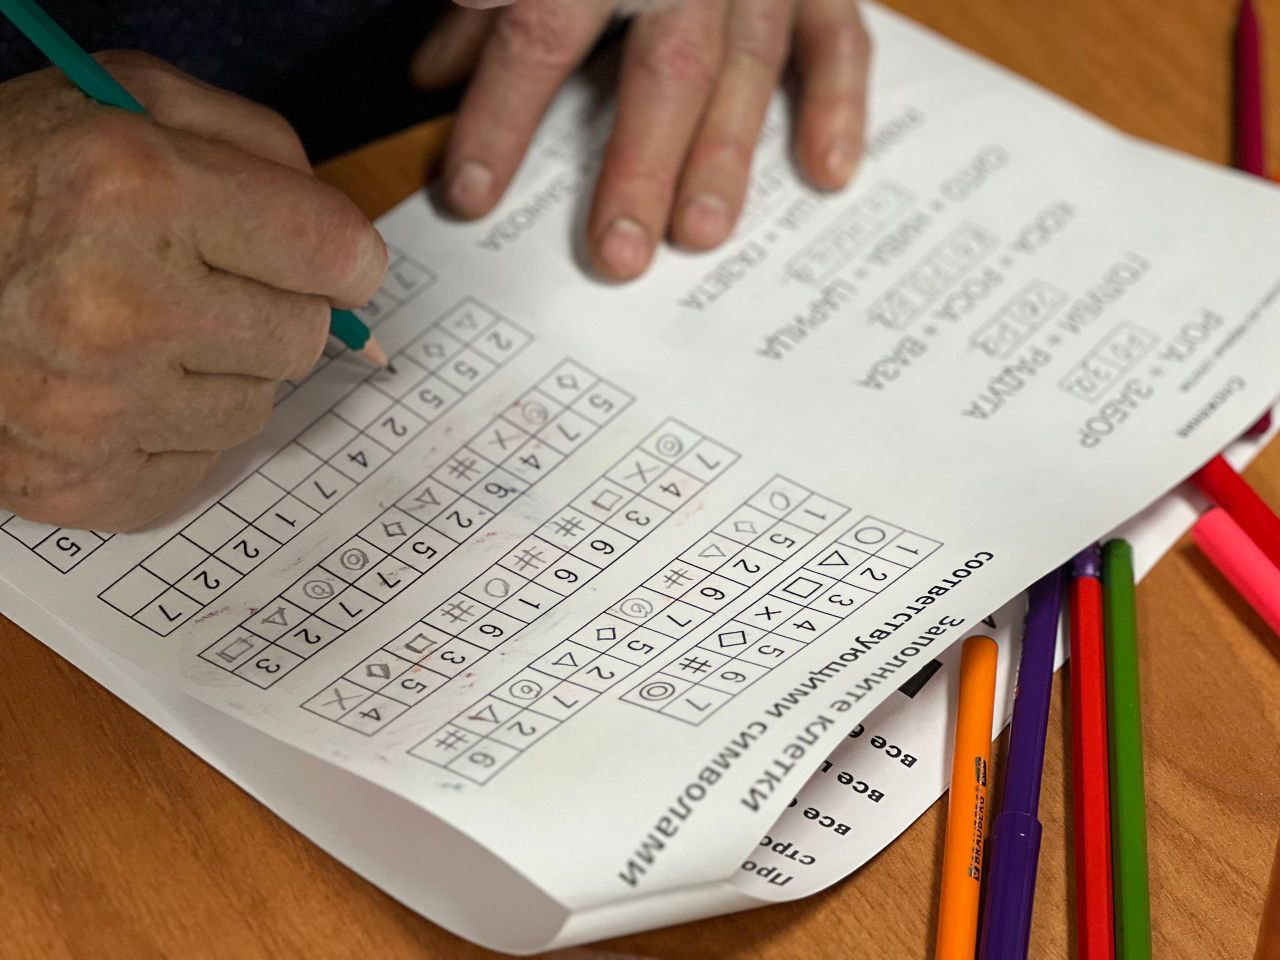 Заполните клетки
соответствующими символами
1 2 3 4 5 6 7
○ △ □ × ◇ # ◎
1 5 2 6 7 5 2 7 2 6
○ ◇ △ # ◎ ◇ △ ◎ △ #
7 4 3 6 6 1 6 3 5 4
◎ × □ # # ○ # □ ◇ ×
5 7 4 6 2 5 7 7 2 3
◇ ◎ × # △ ◇ ◎ ◎ △ □
2 5 5 2 4 7 1 2 2 7
△ ◇
7
5
РОГА + ЗАБОР
ГОЛУБИ + РАДУГА
КОСА + РОСА + ВАЗА
СИТО + НИВА + ЦАРИЦА
+ ГАЗЕТА
ЗАНОЗА
все
все
все
BRAUBERG